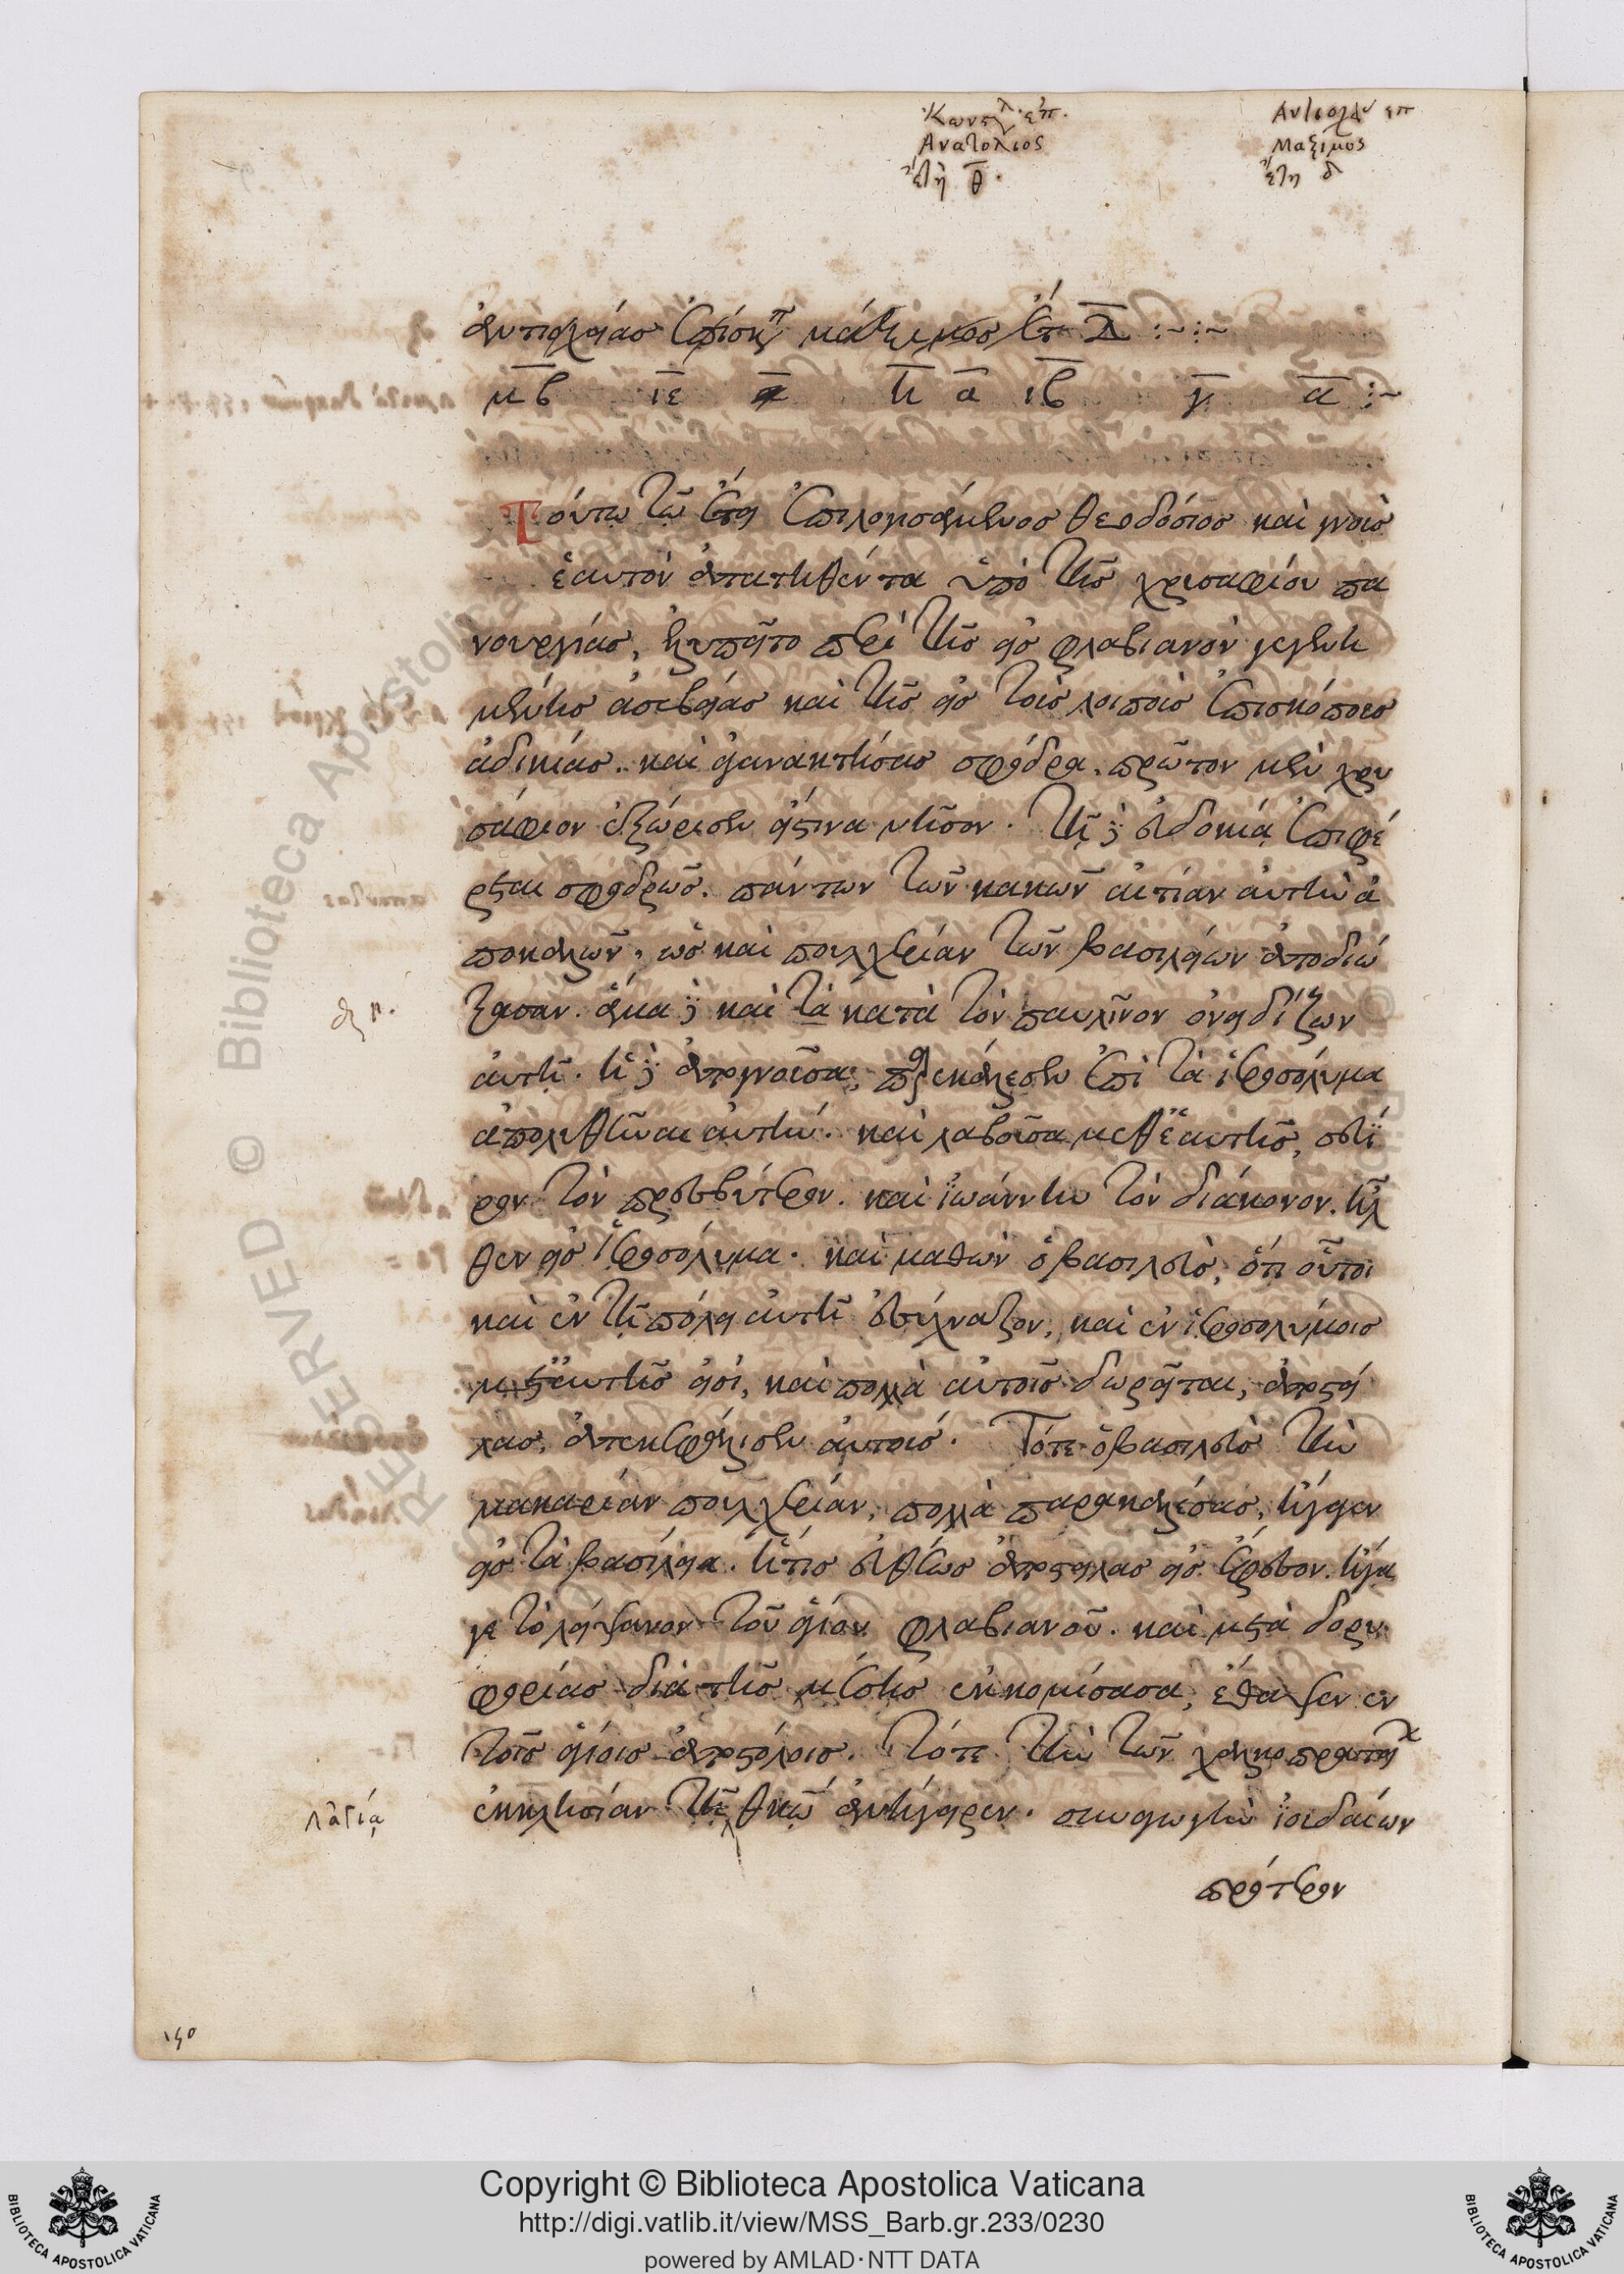 Κωνσλ. ἐπ.
Ανατολιος
ἔτη θ.
Αντιοχ επ
Μαξιμος
ἔτη δ
ἀντιοχείας ἐπίσκοπ μάξιμος ἔτ Δ :~:~
μβ ιε α η α ιβ γ α :~
Τούτω τῶ ἔτει ἐπιλογησάμενος θεοδόσιος καὶ γνοὺς
ἑαυτὸν ἀπατηθέντα ὑπὸ τῆς χρισαφίου πα
νουργίας, ἐλυπεῖτο περὶ τῆς εἰς φλαβιανὸν γεγενη
μένης ἀσεβείας καὶ τῆς εἰς τοὺς λοιποὺς ἐπισκόπους
ἀδικίας. καὶ ἀγανακτήσας σφόδρα. πρῶτον μὲν χρυ
σάφιον ἐξώρισεν εἴς τινα νῆσον. τῇ δὲ εὐδοκίᾳ ἐπιφέ
ρεται σφοδρῶς. πάντων τῶν κακῶν αἰτίαν αὐτὴν ἀ
ποκαλῶν, ὡς καὶ πουλχερίαν τῶν βασιλείων ἀποδιώ
ξασαν. ἅμα δὲ καὶ τὰ κατὰ τὸν παυλῖνον ὀνειδίζων
αὐτῇ. ἡ δὲ ἀπογνοῦσα, παρεκάλεσεν ἐπὶ τὰ ἱεροσόλυμα
ἀπολυθῆναι αὐτήν. καὶ λαβοῦσα μεθ' ἑαυτῆς, σευῆ
ρον τὸν πρεσβύτερον. καὶ ἰωάννην τὸν διάκονον. ἦλ
θεν εἰς ἱεροσόλυμα. καὶ μαθὼν ὁ βασιλεὺς, ὅτι οὗτοι
καὶ ἐν τῇ πόλει αὐτῇ ἐσύχναζον, καὶ ἐν ἱεροσολύμοις
μετ' αυτῆς εἰσί, καὶ πολλὰ αὐτοῖς δωρεῖται, ἀποστεί
λας, ἀπεκεφάλισεν αὐτούς. Τότε ὁ βασιλεὺς τὴν
μακαρίαν πουλχερίαν, πολλὰ παρακαλέσας, ἤγαγεν
εἰς τὰ βασίλεια. ἥτις εὐθέως ἀποστείλας εἰς ἔφεσον. ἤγα
γε τὸ λείψανον τοῦ ἁγίου φλαβιανοῦ. καὶ μετὰ δορυ
φορίας διὰ τῆς μέσης ἐκκομίσασα, ἔθαψεν ἐν
τοῖς ἁγίοις ἀποστόλοις. Τότε τὴν τῶν χαλκοπρατείχ
ἐκκλησίαν τῇ θκῶ ἀνήγειρεν. συναγωγὴν ἰουδαίων
πρότερον
Λατίᾳ
190
Copyright © Biblioteca Apostolica Vaticana
http://digi.vatlib.it/view/MSS_Barb.gr.233/0230
powered by AMLAD·NTT DATA
BIBLIOTECA APOSTOLICA VATICANA
BIBLIOTECA APOSTOLICA VATICANA
RESERVED © Biblioteca Apostolica